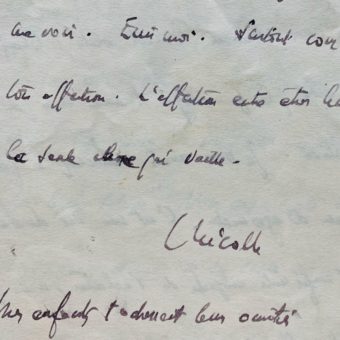 me voir. Ecris moi. Surtout
ton affection. L'affection entre êtres
la seule chose qui vaille.
Nicolle
enfants t'adressent leurs amitiés